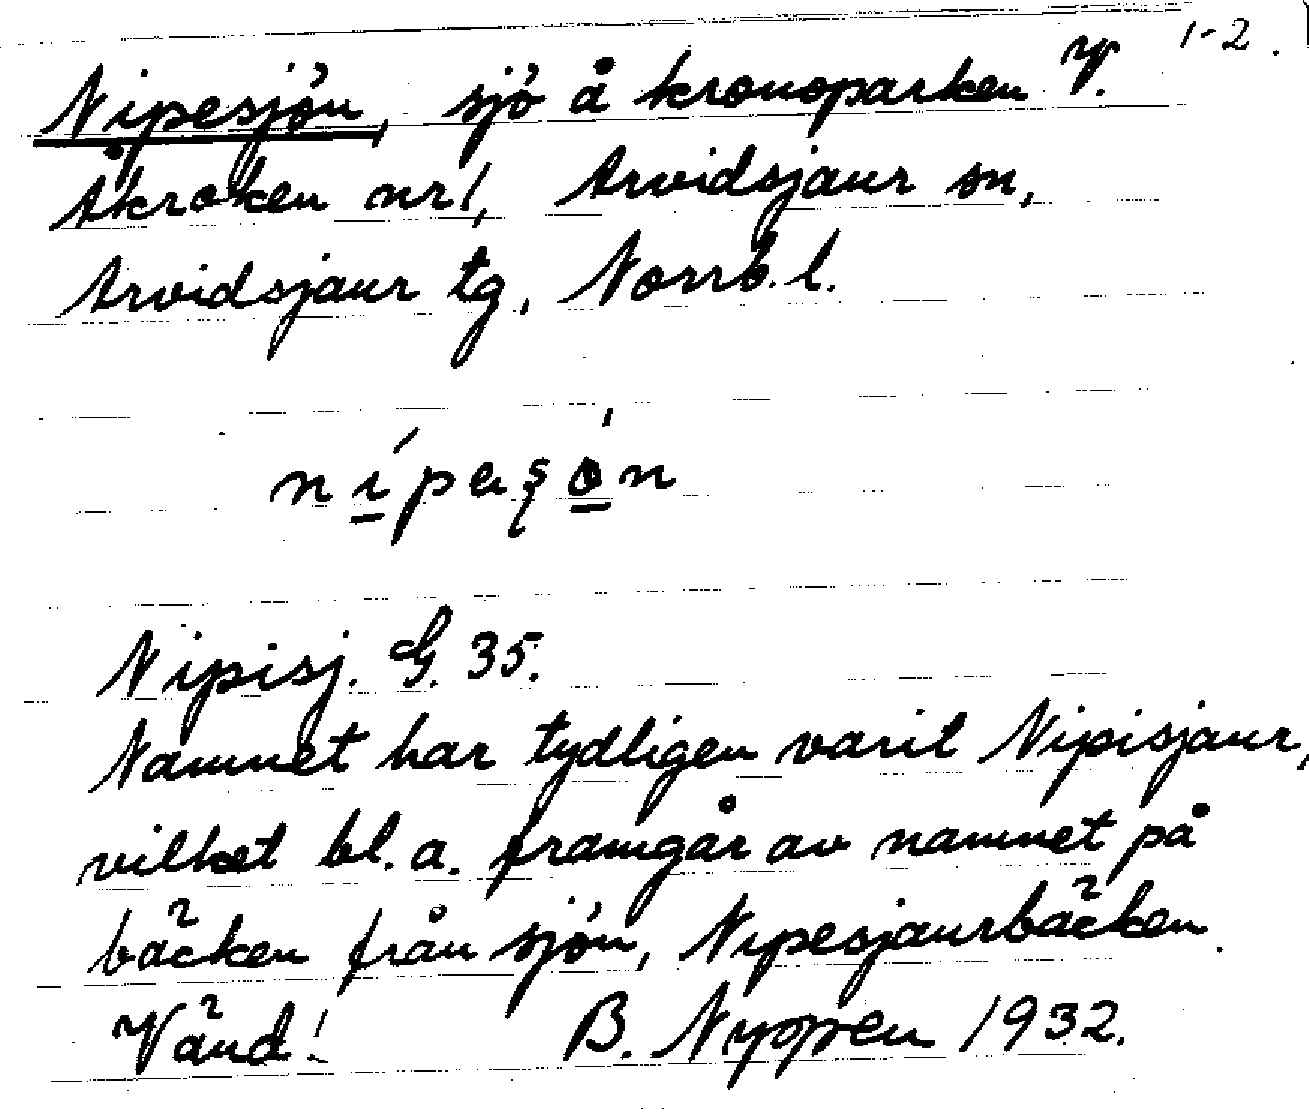 1-2.
Nipesjön, sjö å kronoparken V.
Åkroken nr 1, Arvidsjaur sn,
Arvidsjaur tg, Norrb. l.
Nipisj. G. 35.
Namnet har tydligen varit Nipisjaur,
vilket bl. a. framgår av namnet på
bäcken från sjön, Nipesjaurbäcken.
Vänd! B. Nyppen 1932.